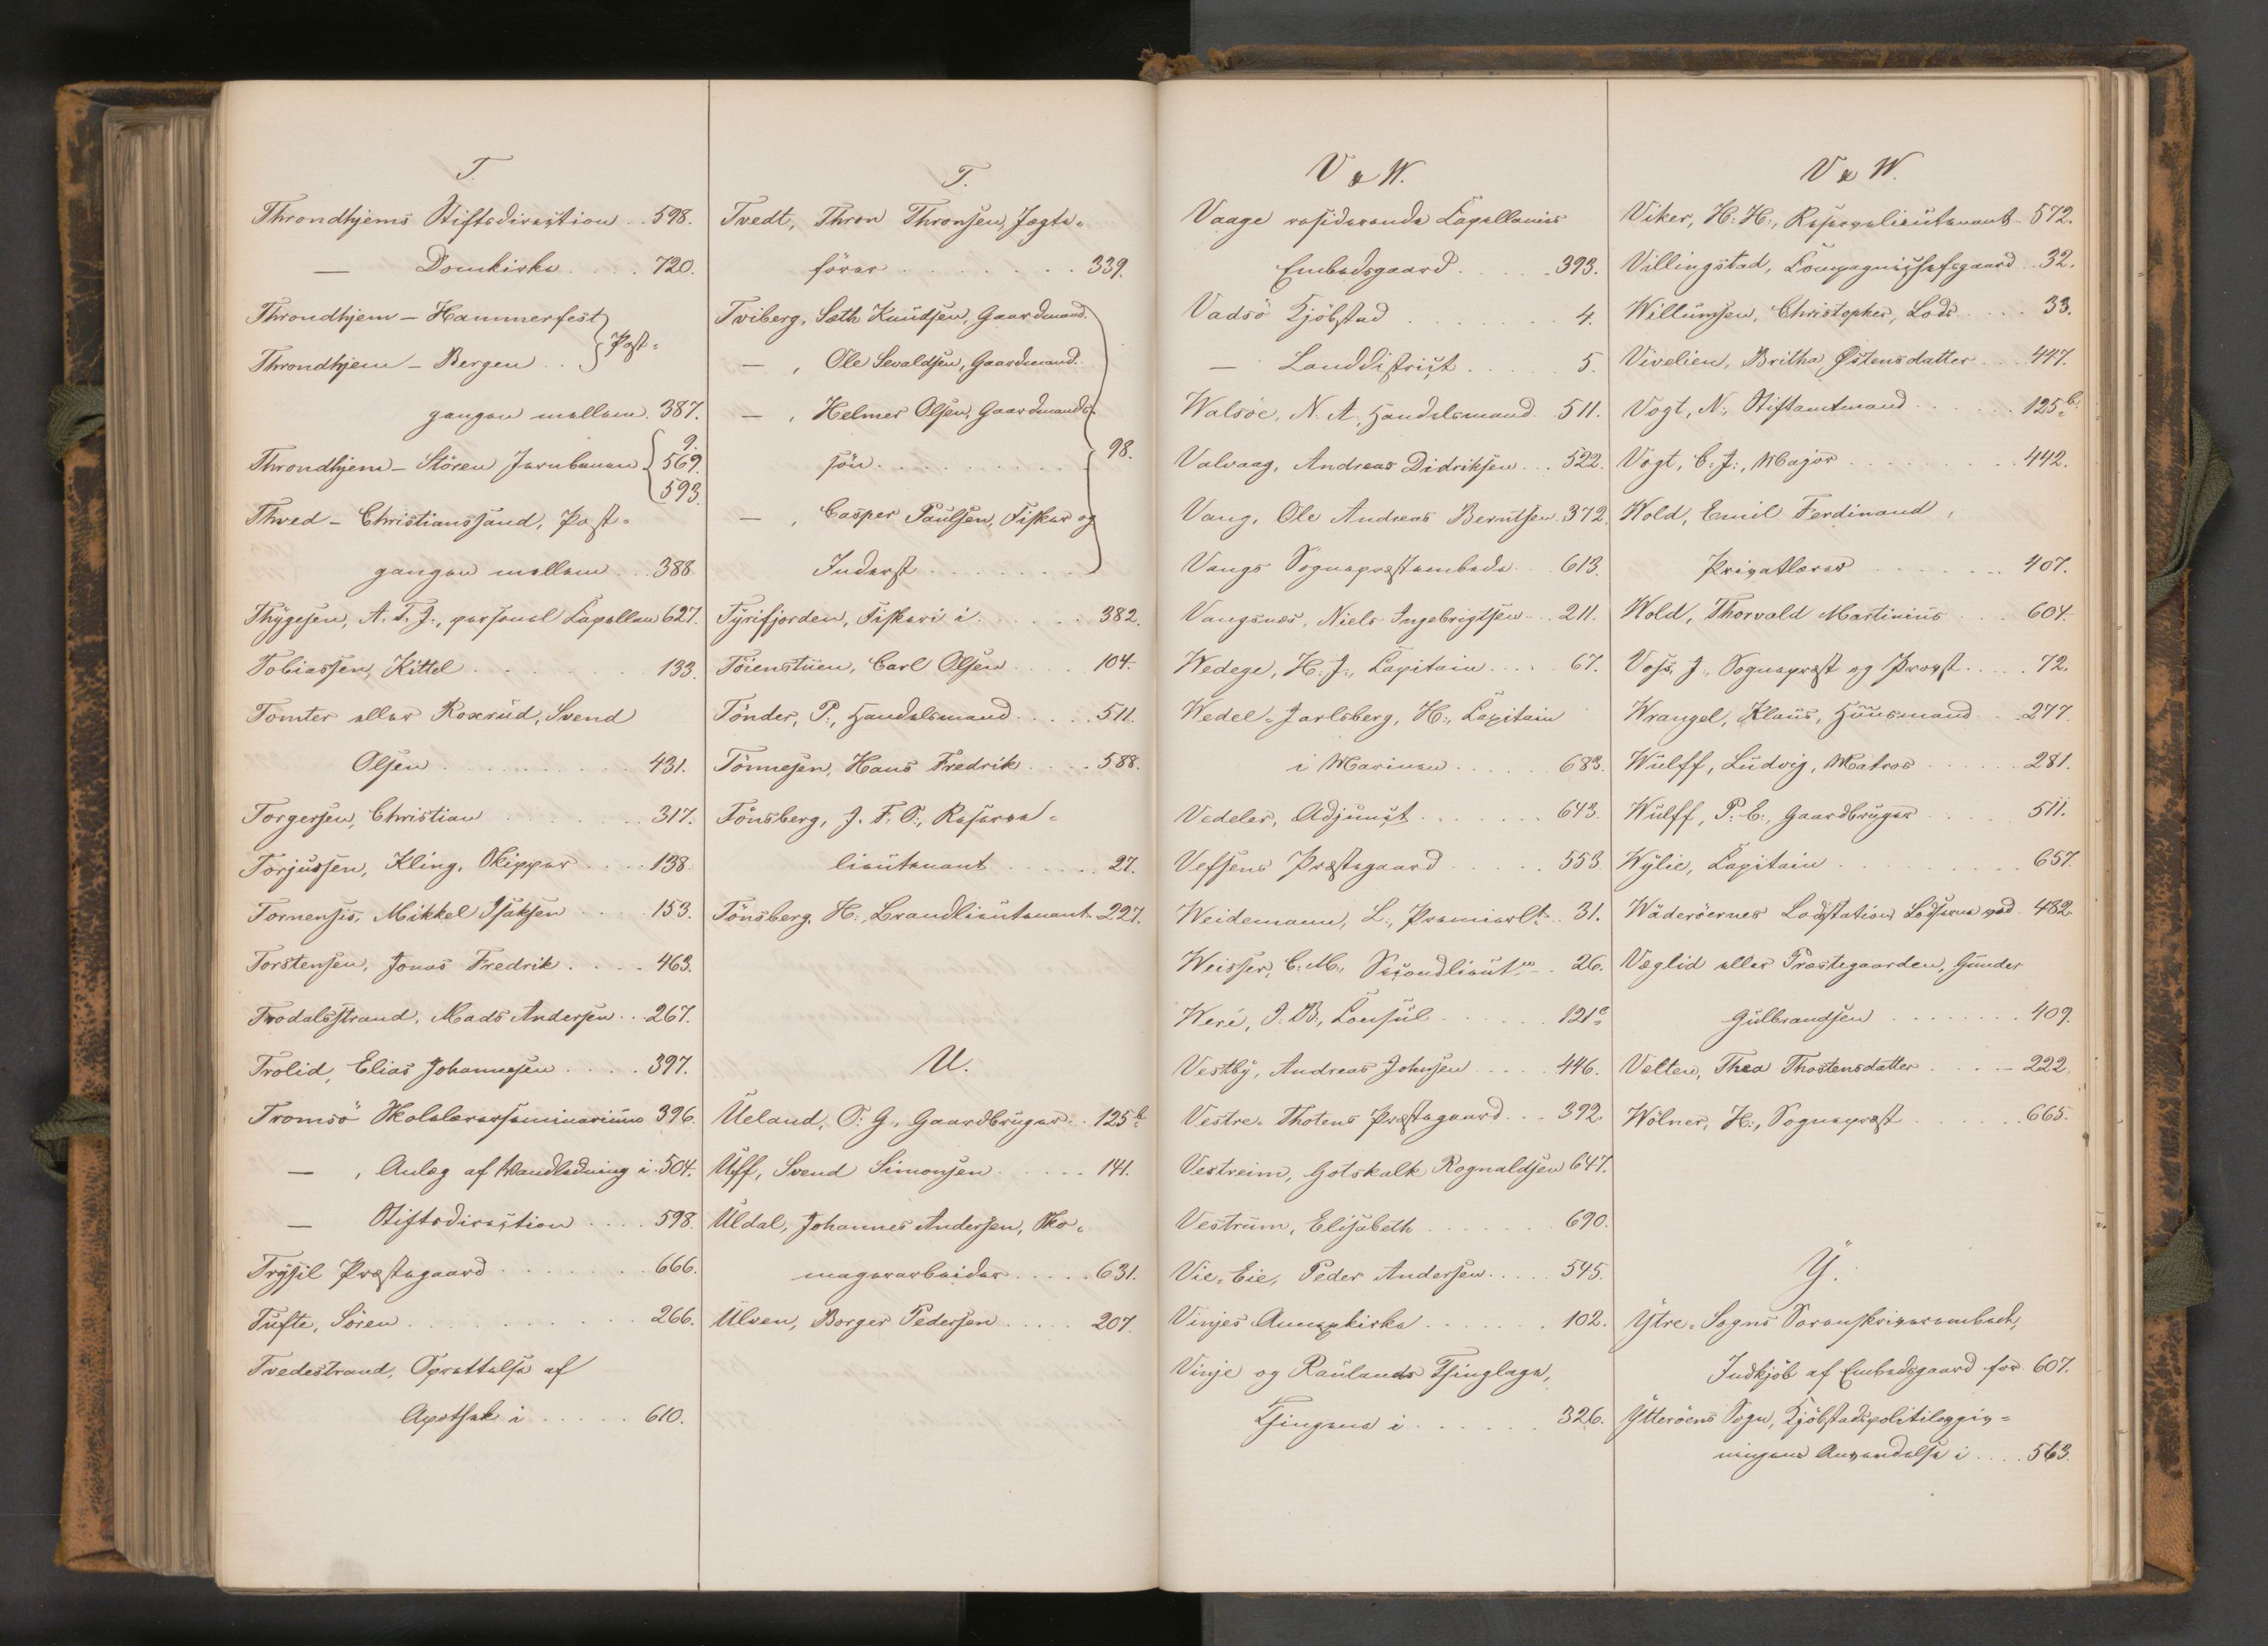 T.
Throndhjems Stiftsdirection .. 598.
— Domkirke .... 720.
Throndhjem – Hammerfest
Throndhjem – Bergen .. } Post-
gangen mellem. 387.
Throndhjem – Stören Jernbanen { 9. 569. 593.
Thved – Christianssand, Post-
gangen mellem ... 388.
Thygesen, A. T. J., personel Capellan 627.
Tobiassen, Kittel ....... 133.
Tomter eller Roxrud, Svend
Olsen .......... 431.
Torgersen, Christian ....... 317.
Torjussen, Kling, Skipper .... 138.
Tornensis, Mikkel Isaksen .... 153.
Torstensen, Jonas Fredrik .... 463.
Trodalsstrand, Mads Andersen .. 267.
Trolid, Elias Johannesen .... 397.
Tromsö Skolelærerseminarium 396.
— , Anlæg af Vandledning i. 504.
— Stiftsdirection .... 598.
Trysil Præstegaard ....... 666.
Tufte, Sören .......... 266.
Tvedestrand, Oprettelse af
Apothek i ..... 610.
T.
Tvedt, Thron Thronsen, Jagte-
förer ........ 339.
Tviberg, Seth Knudsen, Gaardmand.
— , Ole Sevaldsen, Gaardmand.
— , Helmer Olsen, Gaardmands-
sön .......... 98.
— , Casper Paulsen, Fisker og
Inderst ........
Tyrifjorden, Fiskeri i ...... 382.
Töienstuen, Carl Olsen .... 104.
Tönder, P., Handelsmand ..... 511.
Tönnesen, Hans Fredrik .... 588.
Tönsberg, J. F. O., Reserve-
lieutenant ...... 27.
Tönsberg, H., Brandlieutenant. 227.
U.
Ueland, O. G., Gaardbruger .. 125 b.
Uff, Svend Simonsen ..... 141.
Uldal, Johannes Andersen, Sko-
magerarbeider ..... 631.
Ulven, Borger Pedersen ..... 207.
V & W.
Vaage residerende Capellanies
Embedsgaard ..... 393.
Vadsö Kjöbstad ....... 4.
— Landdistrict ..... 5.
Walsöe, N. A., Handelsmand. 511.
Valvaag, Andreas Didriksen ... 522.
Vang, Ole Andreas Berntsen. 372.
Vangs Sognepræstembede .. 613.
Vangsnes, Niels Ingebrigtsen ... 211.
Wedege, H. J., Capitain .... 67.
Wedel-Jarlsberg, H., Capitain
i Marinen ..... 683.
Vedeler, Adjunct ....... 643.
Vefsens Præstegaard ..... 553.
Weidemann, L., Premierlt. .. 31.
Weisser, C. M., Secondlieutn. .. 26.
Weré, J. B., Consul ...... 121 c.
Vestby, Andreas Johnsen .... 446.
Vestre-Thotens Præstegaard ... 392.
Vestreim, Gotskalk Rognaldsen 647.
Vestrum, Elisabeth ...... 690.
Vie-Eie, Peder Andersen ..... 545.
Vinjes Annexkirke ...... 102.
Vinje og Raulands Thinglage,
Thingene i ...... 326.
V & W.
Viker, H. H., Reservelieutenant .. 572.
Villingstad, Compagniechefsgaard .. 32.
Willumsen, Christopher, Lods .... 33.
Vivelien, Britha Østensdatter .... 447.
Vogt, N., Stiftamtmand ...... 125 b.
Vogt, C. J., Major ......... 442.
Wold, Emil Ferdinand,
Privatlærer ....... 407.
Wold, Thorvald Martinius .... 604.
Voss, J., Sognepræst og Provst ..... 72.
Wrangel, Klaus, Huusmand .. 277.
Wulff, Ludvig, Matros ...... 281.
Wulff, P. C., Gaardbruger .... 511.
Wylie, Capitain ........ 657.
Wäderöernes Lodsstation, Lodserne ved. 482.
Væglid eller Præstegaarden, Gunder
Gulbrandsen ....... 409.
Vælten, Thea Thostensdatter .... 222.
Wölner, H., Sognepræst ...... 665.
Y.
Ytre-Sogns Sorenskriverembede,
Indkjöb af Embedsgaard for 607.
Ytteröens Sogn, Kjöbstadspolitilovgiv-
ningens Anvendelse i .... 563.